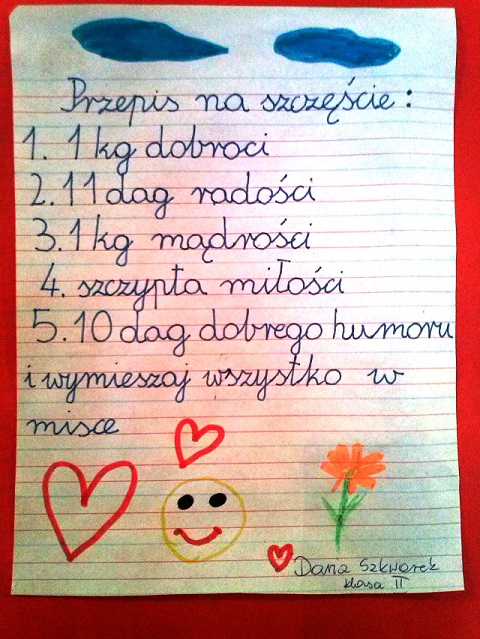 Przepis na szczęście:
1. 1 kg dobroci
2. 11 dag radości
3. 1 kg mądrości
4. szczypta miłości
5. 10 dag dobrego humoru
i wymieszaj wszystko w
misce
Dana Szkwarek
klasa II